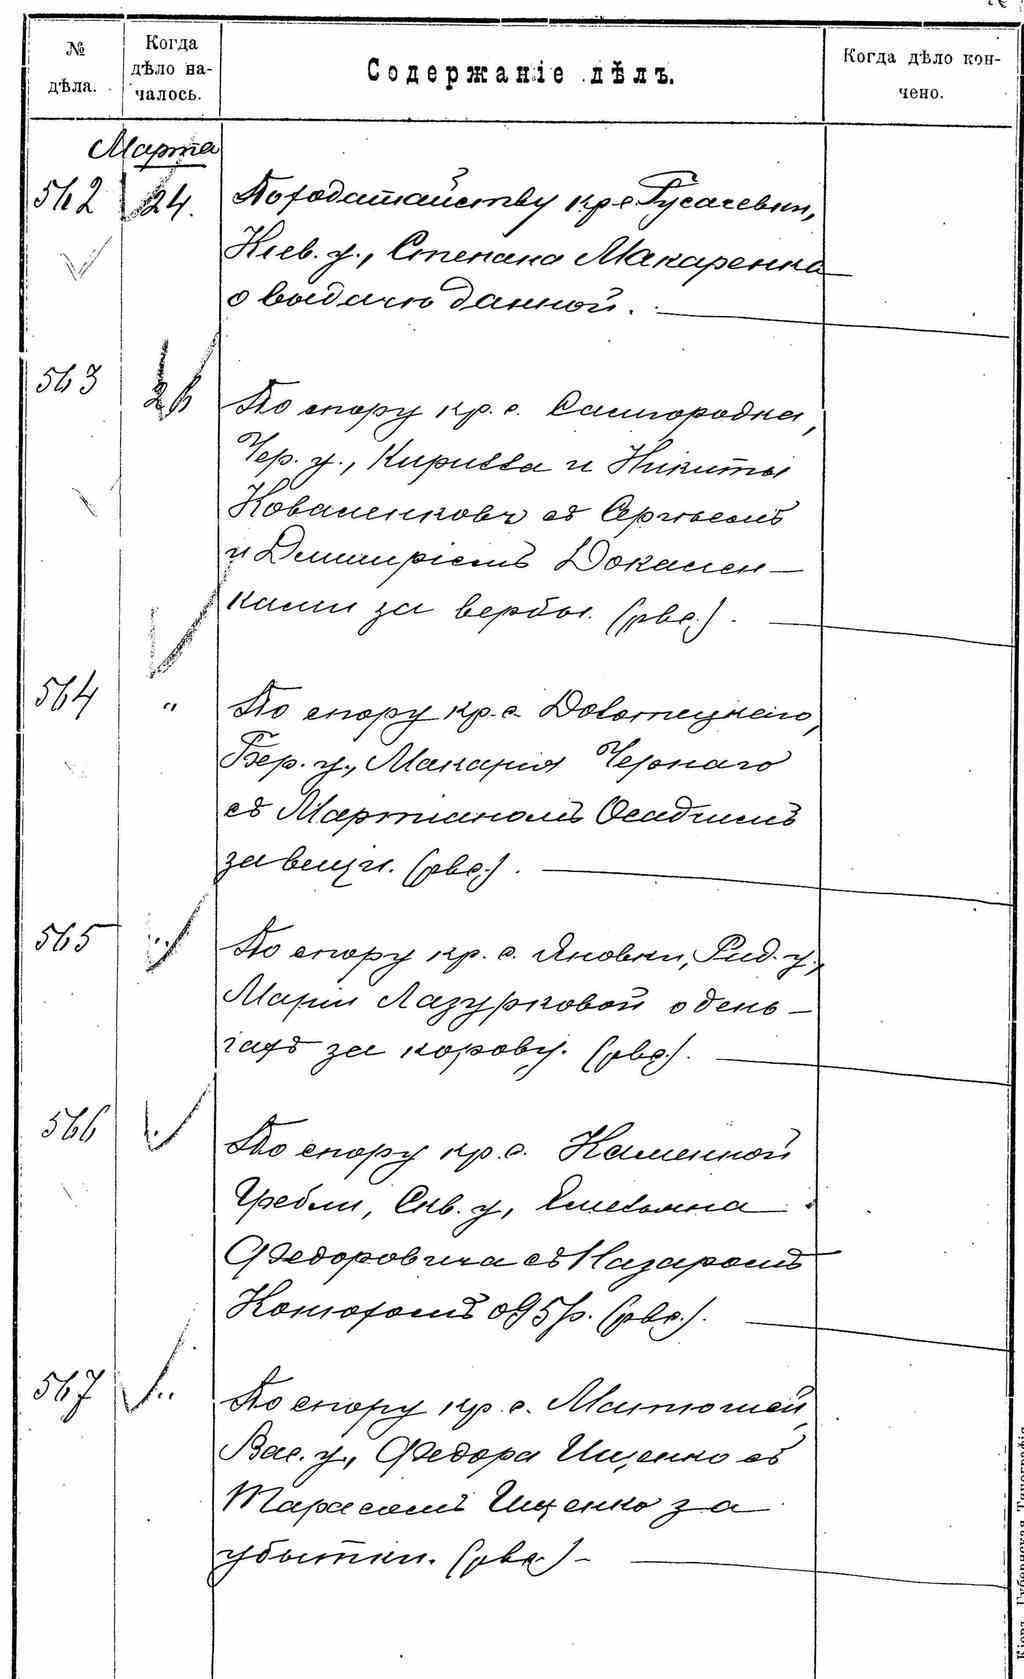 № дѣла.
Когда дѣло началось.
Содержаніе дѣлъ.
Когда дѣло кончено.
Марта
562 24. По ходатайству кр. с. Гусачевки,
Кіев. у., Степана Макаренка
о выдачѣ данной.
563 26 По спору кр. с. Самгородка,
Чер. у., Кирилла и Никиты
Коваленковъ съ Сергѣемъ
и Дмитріемъ Докален-
ками за вербы. (рве.).
564 " По спору кр. с.
Бер. у., Макарія Чернаго
съ Мартіаномъ Осадчимъ
за вещи. (рве.).
565 " По спору кр. с. Яновки, Рад. у.,
Маріи Лазурковой о день-
гахъ за корову. (рве.).
566 " По спору кр. с. Каменной
Гребли, Скв. у., Емельяна
Федоровича съ Назаромъ
Конюхомъ о 95 р. (рве.).
567 " По спору кр. с. Матюшей,
Вас. у., Федора Ищенко съ
Тарасомъ Ищенко за
убытки. (рве.)
Кіевъ. Губернская Типографія